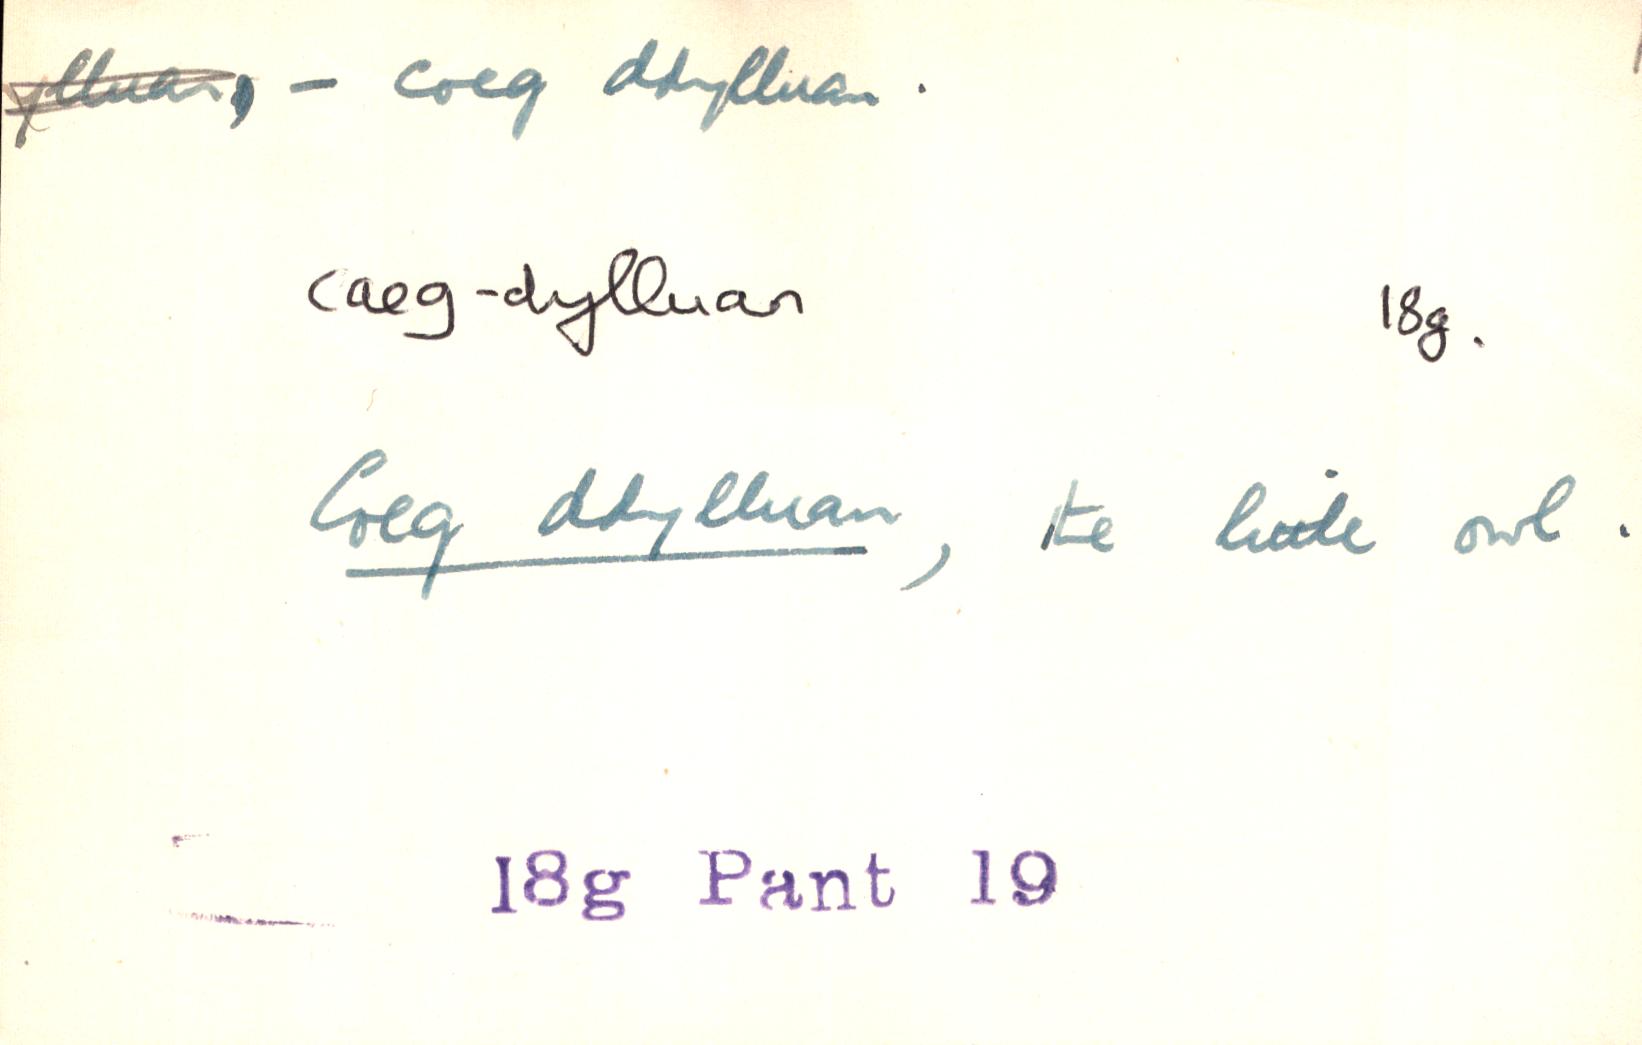 ylluan, – coeg ddylluan.
caeg-dylluan 18g.
Coeg ddylluan, the little owl.
18g Pant 19